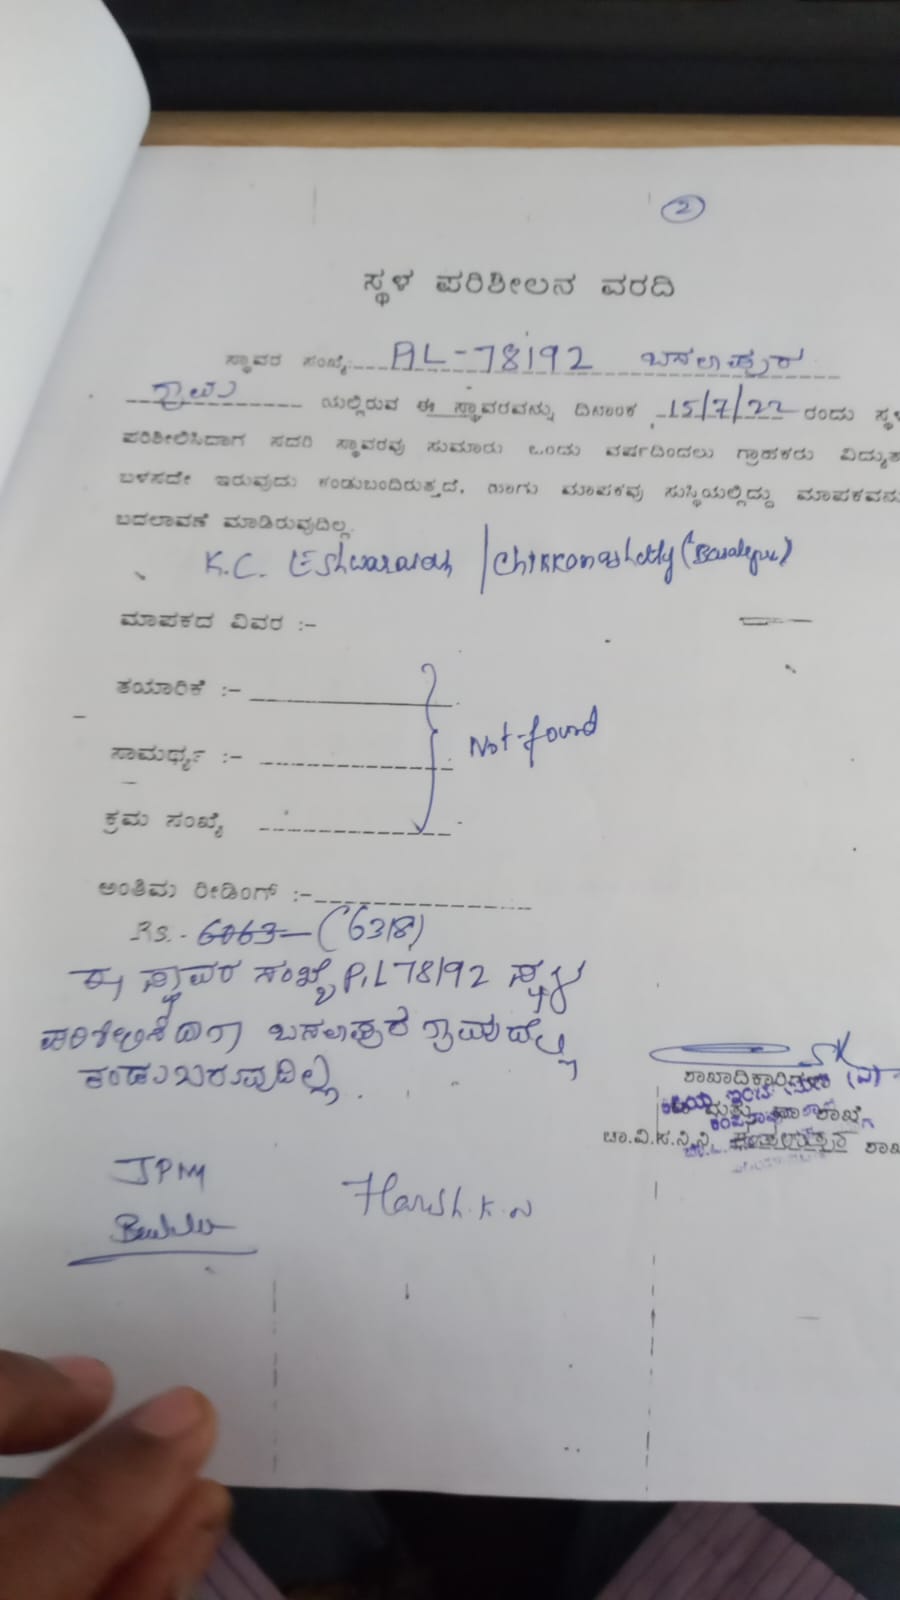 2
ಸ್ಥಳ ಪರಿಶೀಲನ ವರದಿ
ಸ್ಥಾವರ ಸಂಖ್ಯೆ: AL-78192 ಬಸಲಾಪುರ
ಗ್ರಾಮ ಯಲ್ಲಿರುವ ಈ ಸ್ಥಾವರವನ್ನು ದಿನಾಂಕ 15/7/22 ರಂದು ಸ್ಥಳ
ಪರಿಶೀಲಿಸಿದಾಗ ಸದರಿ ಸ್ಥಾವರವು ಸುಮಾರು ಒಂದು ವರ್ಷದಿಂದಲು ಗ್ರಾಹಕರು ವಿದ್ಯುತ
ಬಳಸದೇ ಇರುವುದು ಕಂಡುಬಂದಿರುತ್ತದೆ. ಹಾಗು ಮಾಪಕವು ಸುಸ್ಥಿಯಲ್ಲಿದ್ದು ಮಾಪಕವನು
ಬದಲಾವಣೆ ಮಾಡಿರುವುದಿಲ್ಲ.
K.C. Eshwaraiah /
ಮಾಪಕದ ವಿವರ :-
ತಯಾರಿಕೆ :-
Not-found
ಸಾಮರ್ಥ್ಯ :-
ಕ್ರಮ ಸಂಖ್ಯೆ
ಅಂತಿಮ ರೀಡಿಂಗ್ :-
Rs. 6063 (6318)
ಈ ಸ್ಥಾವರ ಸಂಖ್ಯೆ P.L 78192 ಸ್ಥಳ
ಪರಿಶೀಲಿಸಿದಾಗ ಬಸಲಾಪುರ ಗ್ರಾಮದಲ್ಲಿ
ಕಂಡುಬರುವುದಿಲ್ಲ.
ಶಾಖಾಧಿಕಾರಿ (ವಿ)
ಚಾ.ವಿ.ಸ.ನಿ.ನಿ
JPM
Harish.K.N